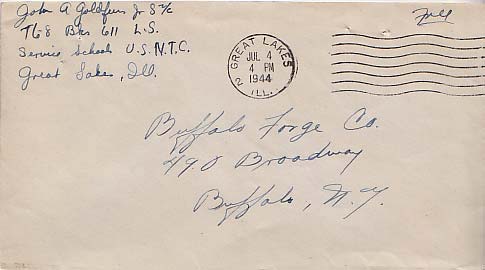 John A Goldfuss Jr S 2/c
T68 Bks 611 L.S.
Service School U.S.N.T.C.
Great Lakes, Ill.
Free
GREAT LAKES
JUL 4
4 PM
1944
2 ILL.
Buffalo Forge Co.
490 Broadway
Buffalo, N.Y.